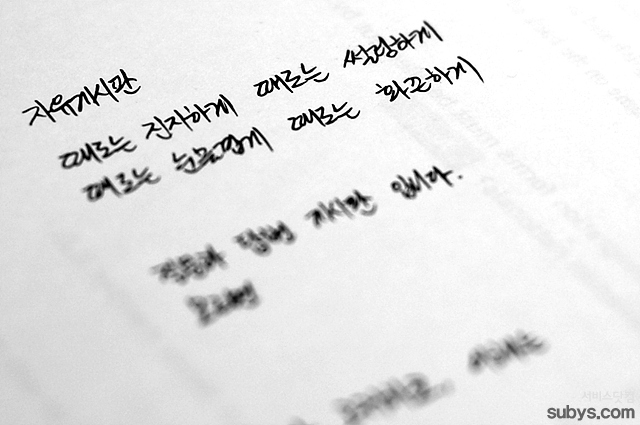 자유게시판
때로는 진지하게 때로는 썰렁하게
때로는 눈물겹게 때로는 화끈하게
질문과 답변 게시판 입니다.
서비스닷컴
subys.com